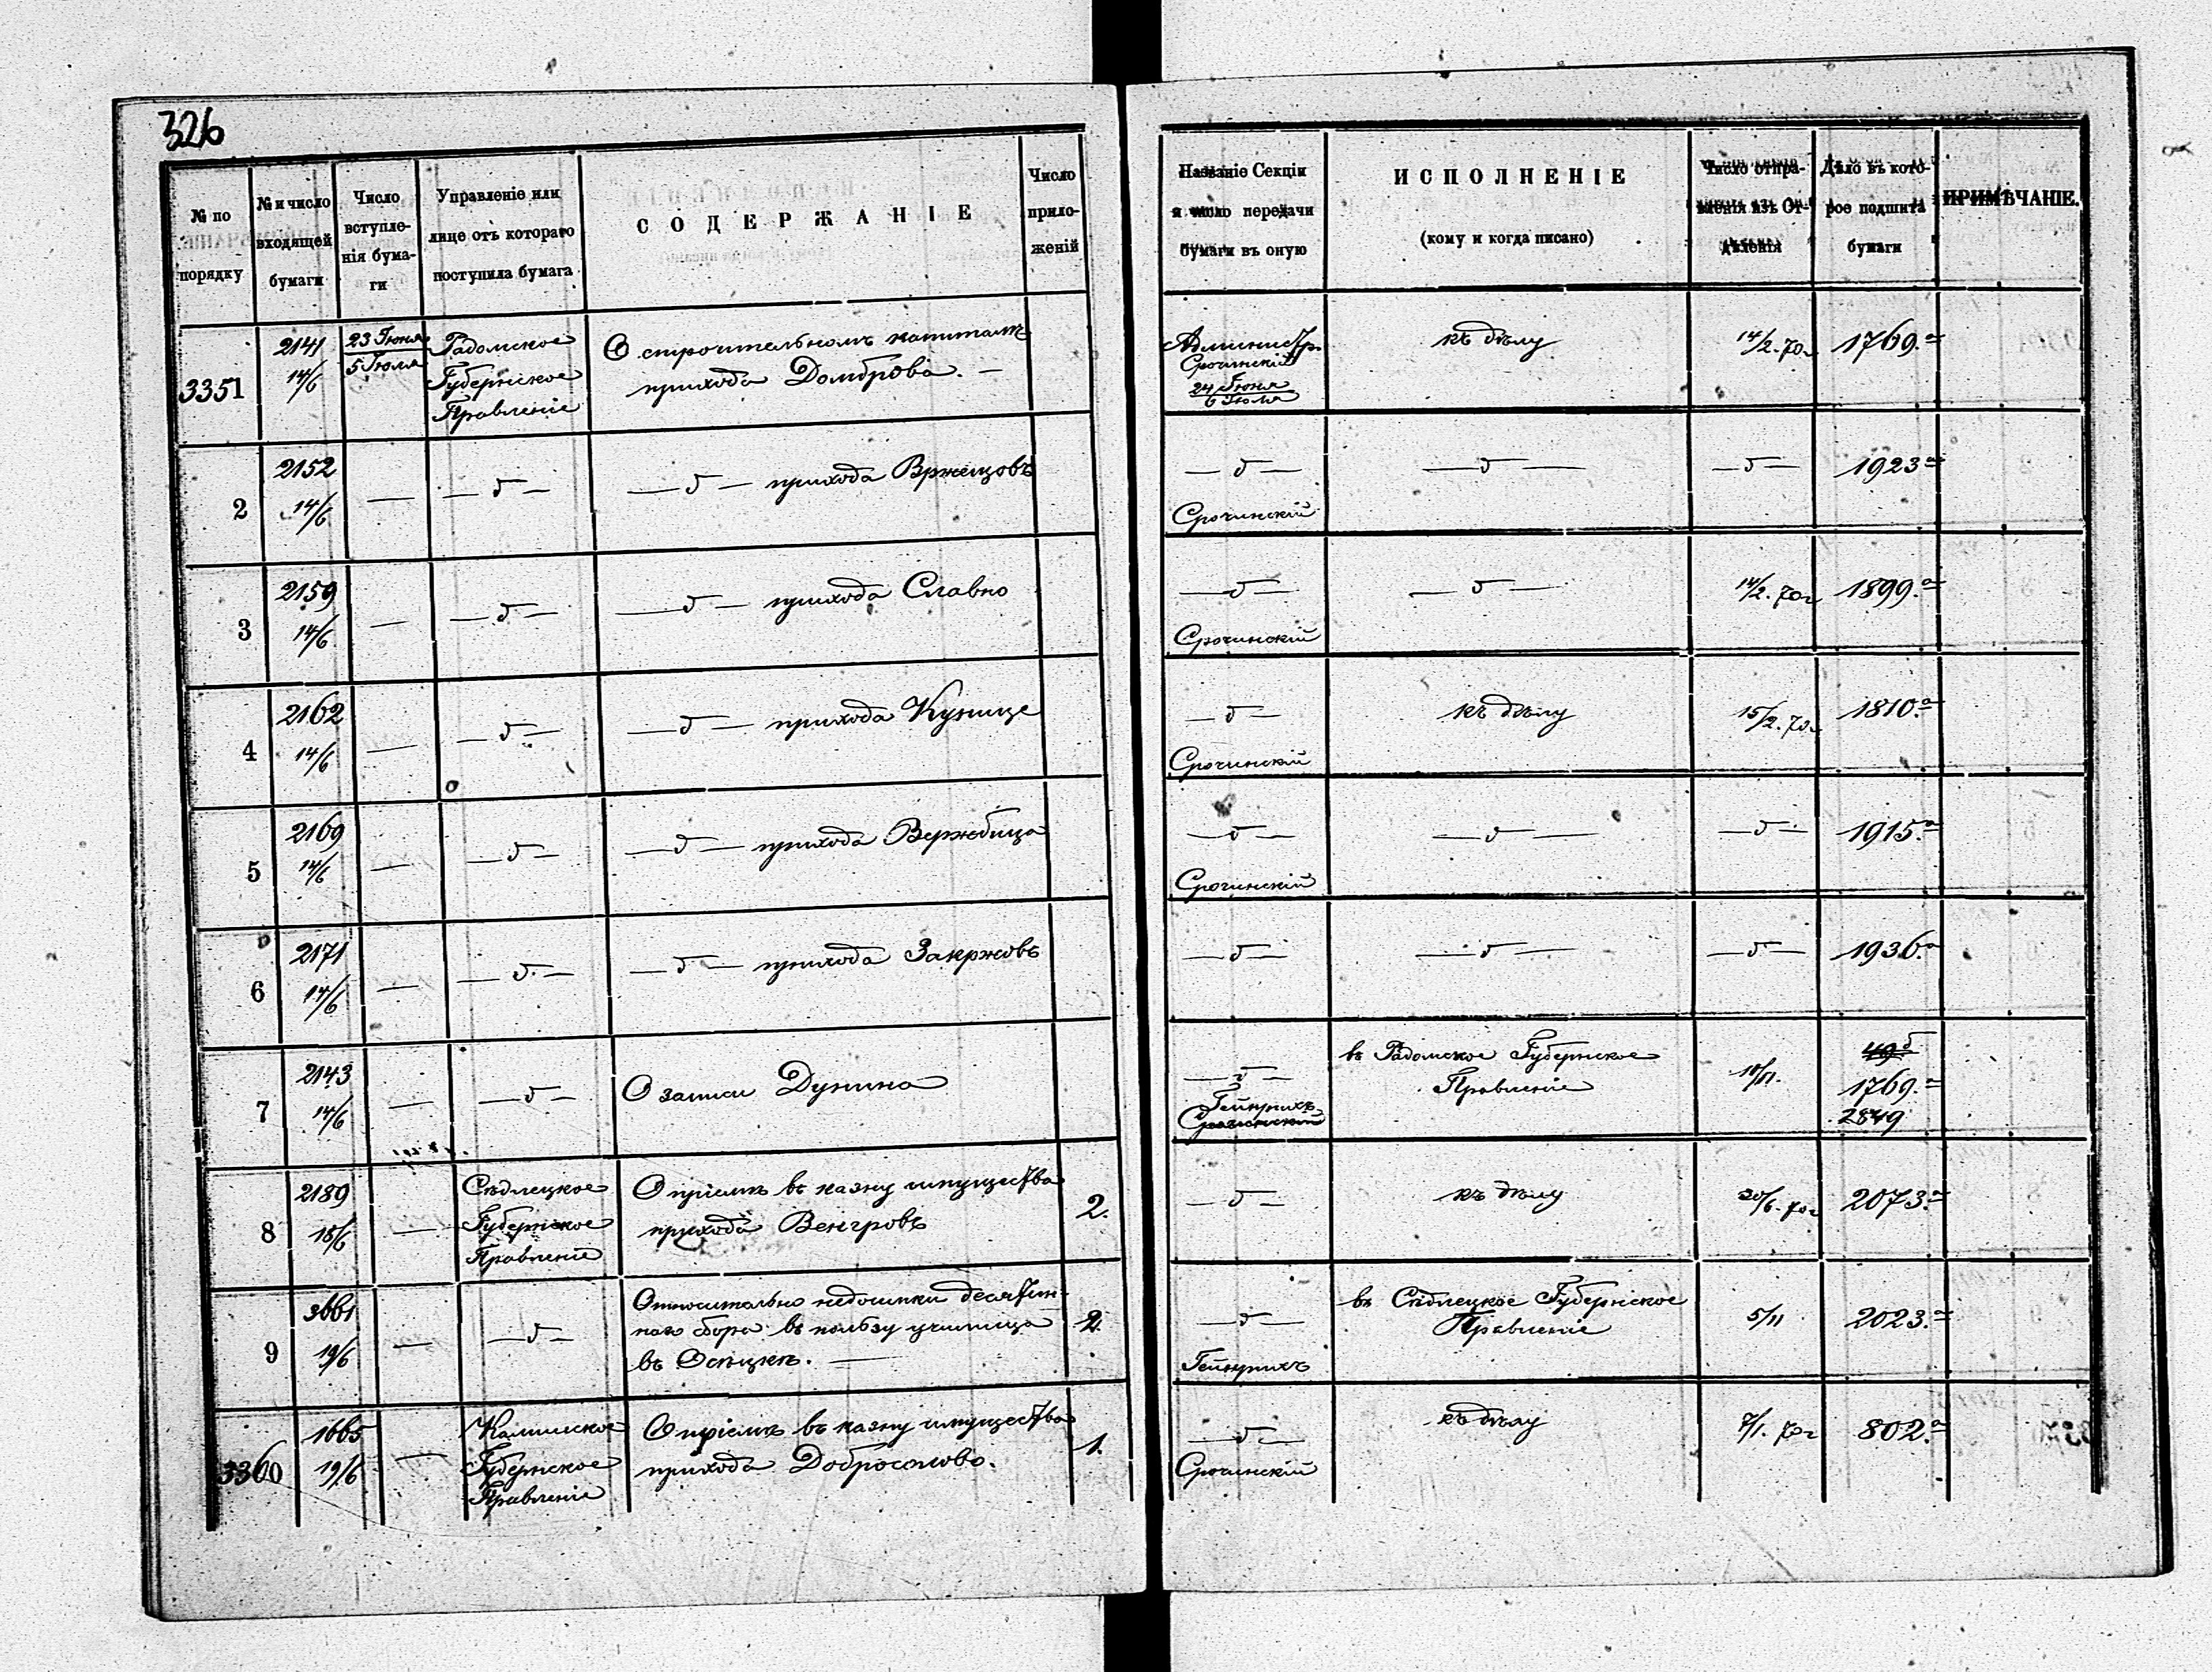 326
№ по порядку
№ и число входящей бумаги
Число вступле- нія бума- ги
Управленіе или лице отъ котораго поступила бумага
СОДЕРЖАНІЕ
Число прило- женій
Названіе Секціи и число передачи бумаги въ оную
ИСПОЛНЕНІЕ
(кому и когда писано)
Число отпра- вленія изъ От- дѣленія
Дѣло въ кото- рое подшита бумаги
ПРИМѢЧАНІЕ.
3351 2141 14/6 23 Іюня 5 Іюля Радомское Губернское Правленіе
О строительномъ капиталѣ
прихода Домброва. —
Администр. Срочинскій 24 Іюня 6 Іюля къ дѣлу 14/2. 70г 1769.а
2 2152 14/6 — — δ — — δ — прихода Вржещовъ
— δ — Срочинскій — δ — — δ — 1923а
3 2159 14/6 — — δ — — δ — прихода Славно
— δ — Срочинскій — δ — 14/2. 70г 1899.а
4 2162 14/6 — — δ — — δ — прихода Кунице
— δ — Срочинскій къ дѣлу 15/2. 70г 1810.а
5 2169 14/6 — — δ — — δ — прихода Вержбица
— δ — Срочинскій — δ — — δ — 1915.а
6 2171 14/6 — — δ — — δ — прихода Закржовъ
— δ — — δ — — δ — 1936.а
7 2143 14/6 — — δ — О записи Дунина
— δ — Гейнрихъ Срочинскій въ Радомское Губернское Правленіе 10/11. 49б 1769.а 2849
8 2189 15/6 — Сѣдлецкое Губернское Правленіе
О пріемѣ въ казну имущества
прихода Венгровъ 2.
— δ — къ дѣлу 20/6. 70г 2073.а
9 3661 19/6 — — δ —
Относительно недоимки десятин-
наго сбора въ пользу училища
въ Осѣцкѣ. — 2.
— δ — Гейнрихъ въ Сѣдлецкое Губернское Правленіе 5/11 2023.а
3360 1665 19/6 — Калишское Губернское Правленіе
О пріемѣ въ казну имущества
прихода Добросолово. 1.
— δ — Срочинскій къ дѣлу 7/1. 70г 802.а